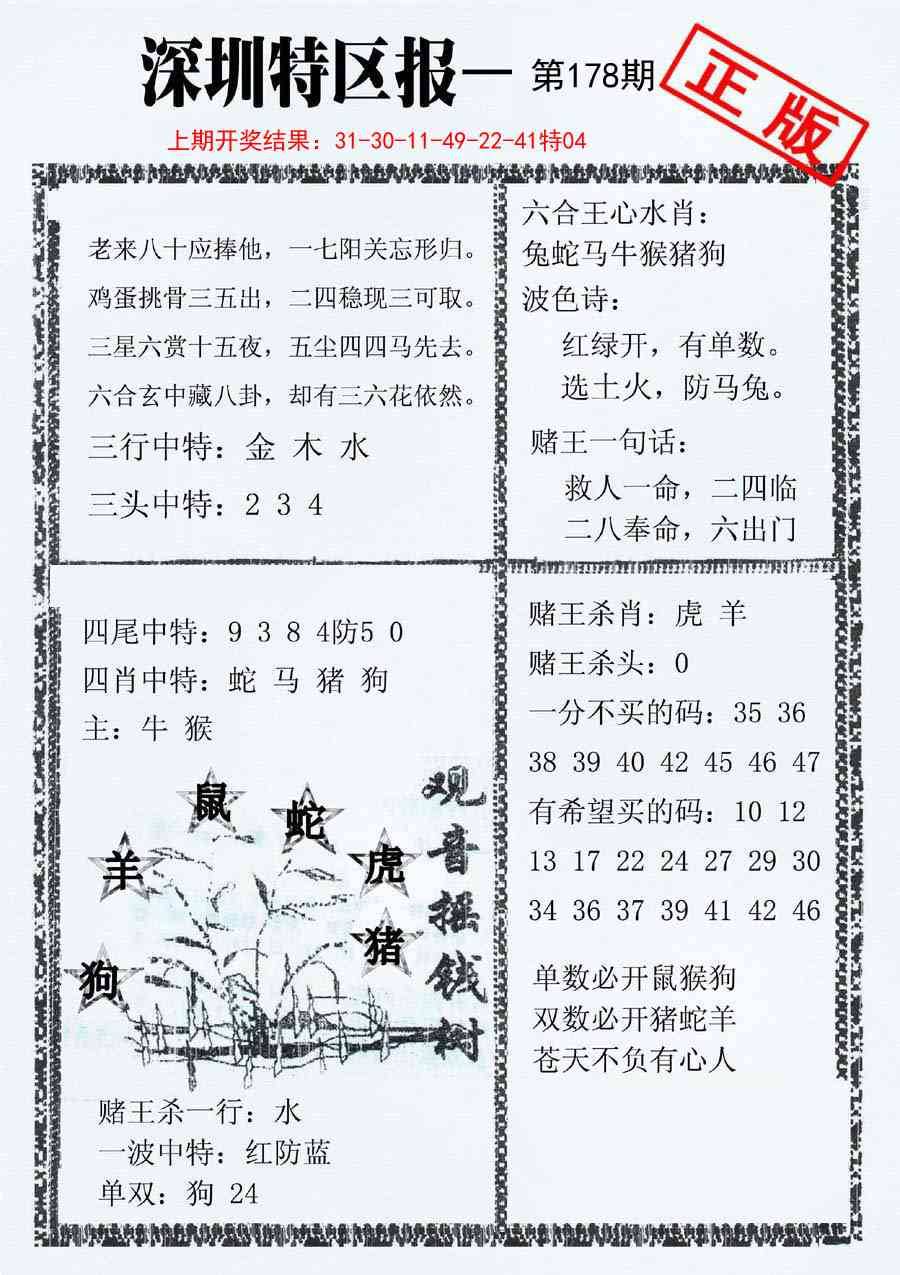 深圳特区报一 第178期
正版
上期开奖结果：31-30-11-49-22-41特04
老来八十应捧他，一七阳关忘形归。
鸡蛋挑骨三五出，二四稳现三可取。
三星六赏十五夜，五尘四四马先去。
六合玄中藏八卦，却有三六花依然。
三行中特：金 木 水
三头中特：2 3 4
六合王心水肖：
兔蛇马牛猴猪狗
波色诗：
红绿开，有单数。
选土火，防马兔。
赌王一句话：
救人一命，二四临
二八奉命，六出门
四尾中特：9 3 8 4防5 0
四肖中特：蛇 马 猪 狗
主：牛 猴
鼠
蛇
羊
虎
猪
狗
观音摇钱树
赌王杀一行：水
一波中特：红防蓝
单双：狗 24
赌王杀肖：虎 羊
赌王杀头：0
一分不买的码：35 36
38 39 40 42 45 46 47
有希望买的码：10 12
13 17 22 24 27 29 30
34 36 37 39 41 42 46
单数必开鼠猴狗
双数必开猪蛇羊
苍天不负有心人